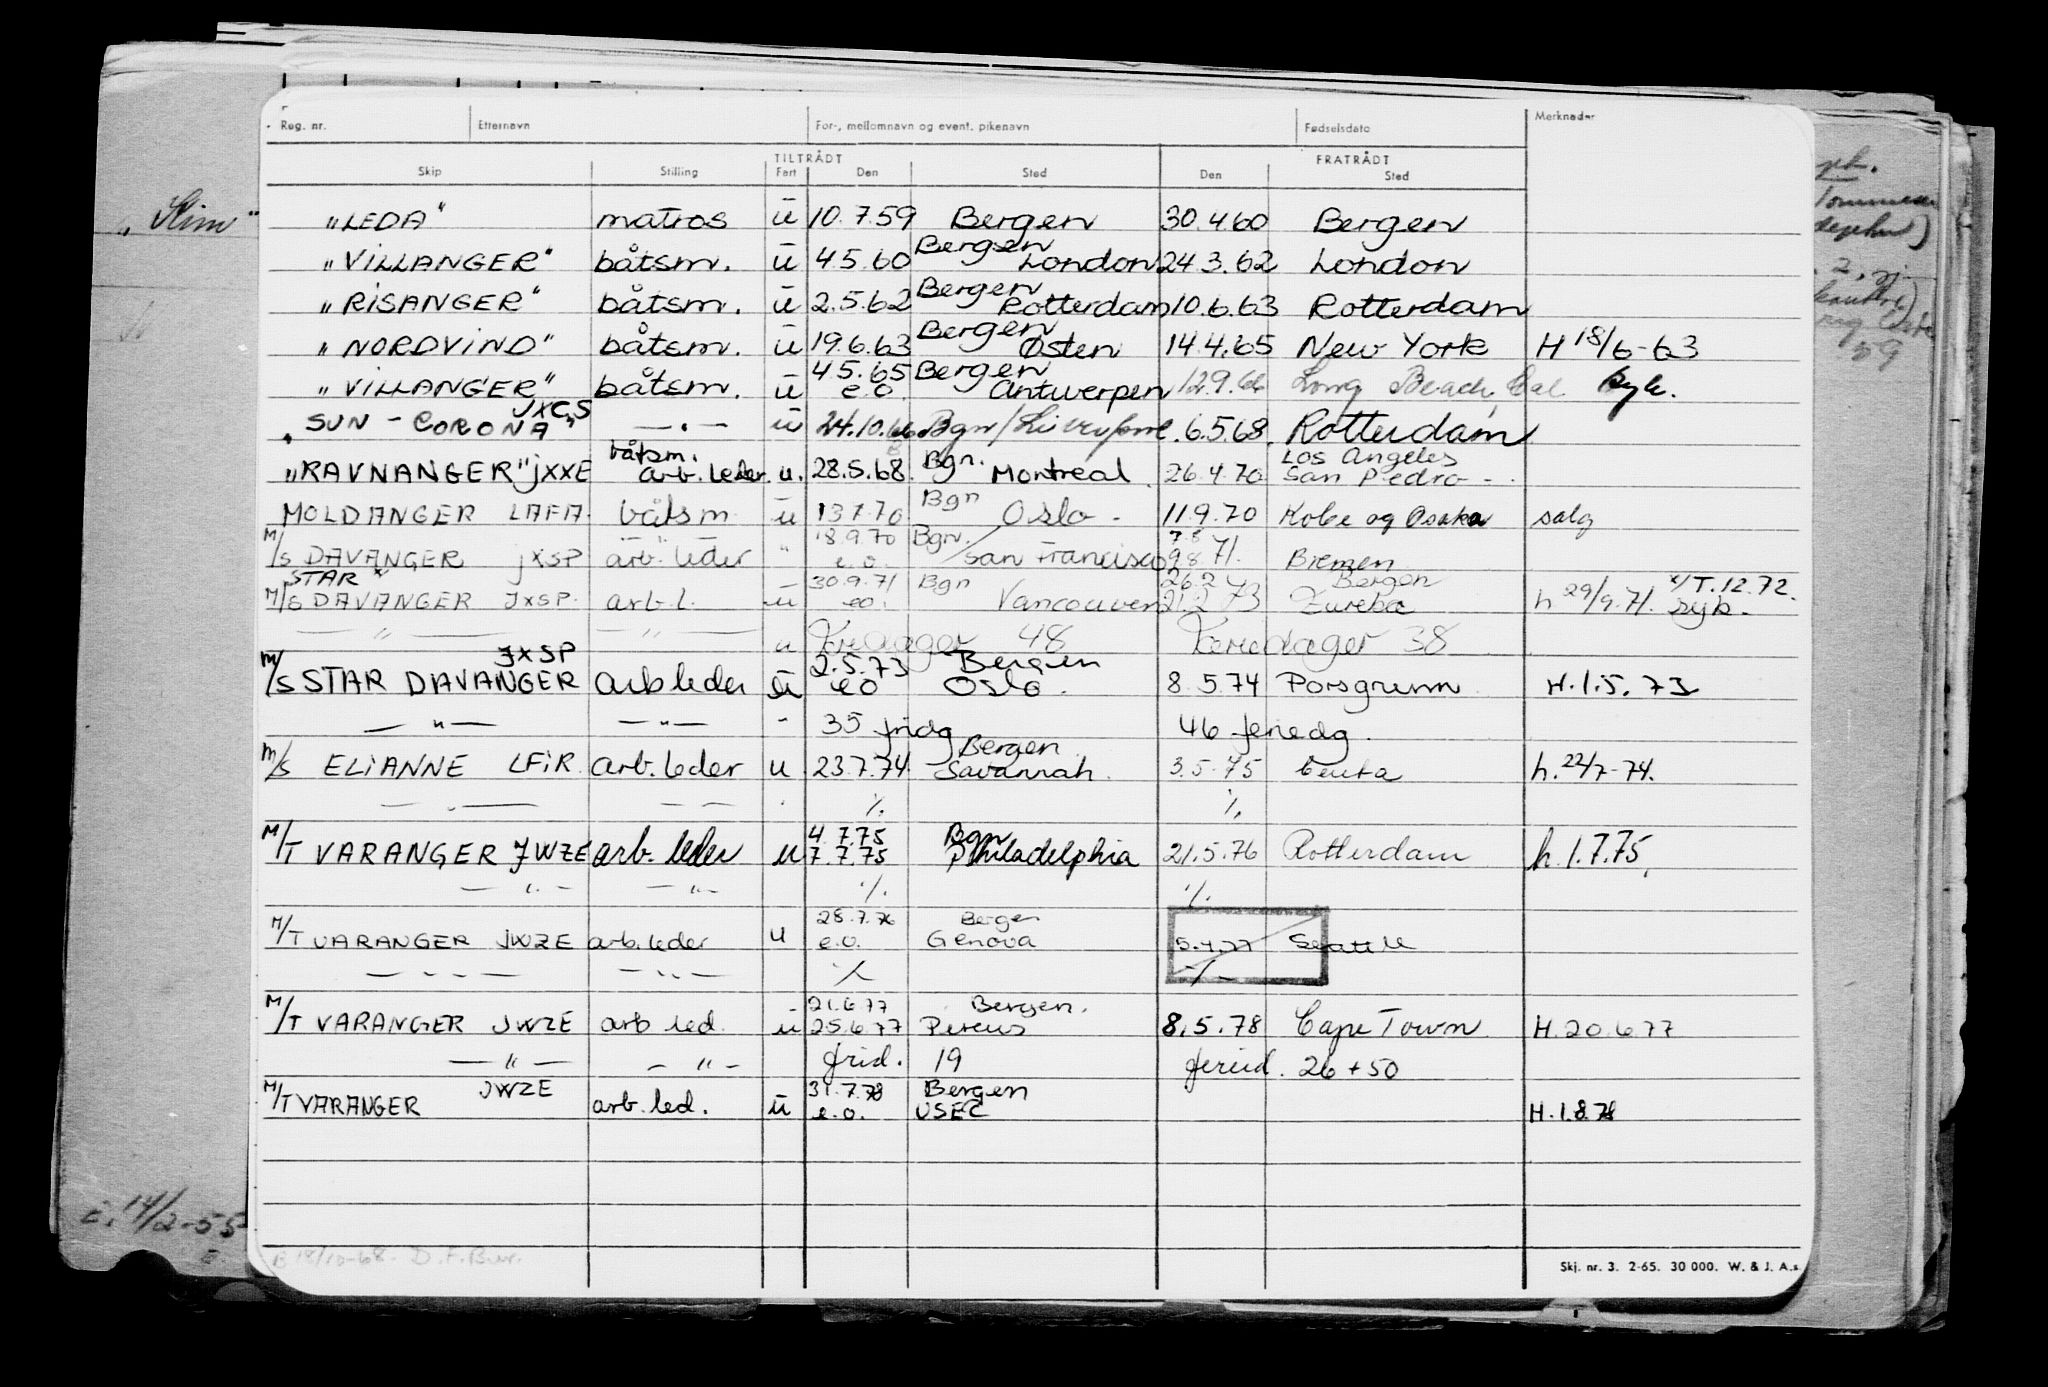 Reg. nr. Etternavn For-, mellomnavn og event. pikenavn Fødselsdato Merknader
TILTRÅDT FRATRÅDT
Skip Stilling Fart Den Sted Den Sted
"LEDA" matros ū 10.7.59 Bergen 30.4.60 Bergen
"VILLANGER" båtsm. ū 4.5.60 Bergen London 24.3.62 London
"RISANGER" båtsm. ū 2.5.62 Bergen Rotterdam 10.6.63 Rotterdam
"NORDVIND" båtsm. ū 19.6.63 Bergen Østen 14.4.65 New York H 18/6-63
"VILLANGER" båtsm. ū 4.5.65 e.o. Bergen Antwerpen 12.9.66 Long Beach, Cal syk.
"SUN-CORONA" JXCS —"— ū 24.10.66 Bgn/Liverpool 6.5.68 Rotterdam
"RAVNANGER" JXXE båtsm. arb. leder u. 28.5.68 Bgn. Montreal 26.4.70 Los Angeles San Pedro -
MOLDANGER LAFA. båtsm ū 13.7.70 Bgn Oslo - 11.9.70 Kobe og Osaka salg
M/S DAVANGER JXSP arb. leder " 18.9.70 e.o. Bgn. San Francisco 7.8 9.8.71. Bremen
M/S STAR x DAVANGER JXSP. arb. l. ū 30.9.71 eo. Bgn Vancouver 26.2 21.2 73 Bergen Eureka h 29/9.71. x/T.12.72. syk.
—"— —"— u Fridager 48 Feriedager 38
M/S STAR DAVANGER JXSP arb leder ū 2.5.73 eo Bergen Oslo. 8.5.74 Porsgrunn H.1.5.73
—"— —"— - 35 fridg 46 feriedg.
M/S ELIANNE LFIR arb. leder u 23.7.74 Bergen Savannah. 3.5.75 Ceuta h. 22/7-74.
—"— — — %. %.
M/T VARANGER JWZE arb. leder u 4.7.75 7.7.75 Bgn Philadelphia 21.5.76 Rotterdam h. 1.7.75,
—"— —"— %. %.
M/T VARANGER JWZE arb. leder u 28.7.76 e.o. Bergen Genova 5.4.77 Seattle
—"— —"— % -/-
M/T VARANGER JWZE arb led. ū 21.6.77 25.6.77 Bergen. Pireus 8.5.78 Cape Town H.20.6.77
—"— —"— frid. 19 feried. 26+50
M/T VARANGER JWZE arb. led. ū 31.7.78 e.o. Bergen USEC H.1.8.78
B 18/10-68.
Skj. nr. 3. 2-65. 30 000. W. & J. A.s
"Slim"
14/2-55
59